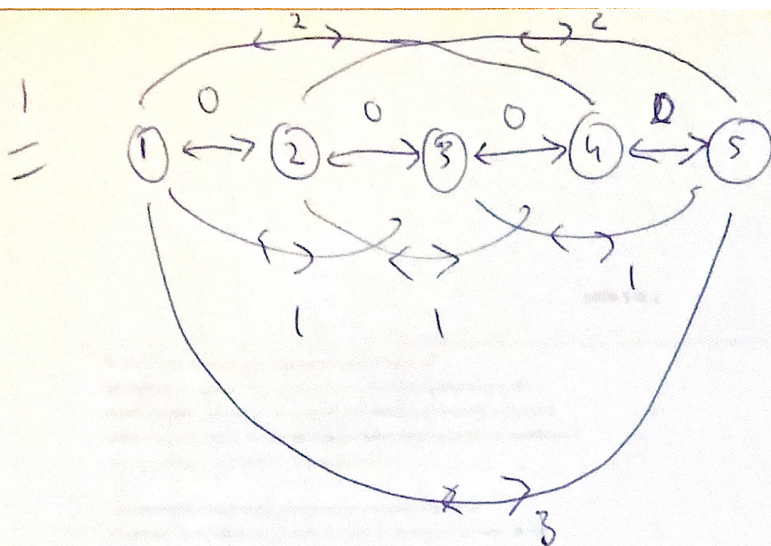 2 2
1 0 0 0 0
= 1 2 3 4 5
1 1 1
3